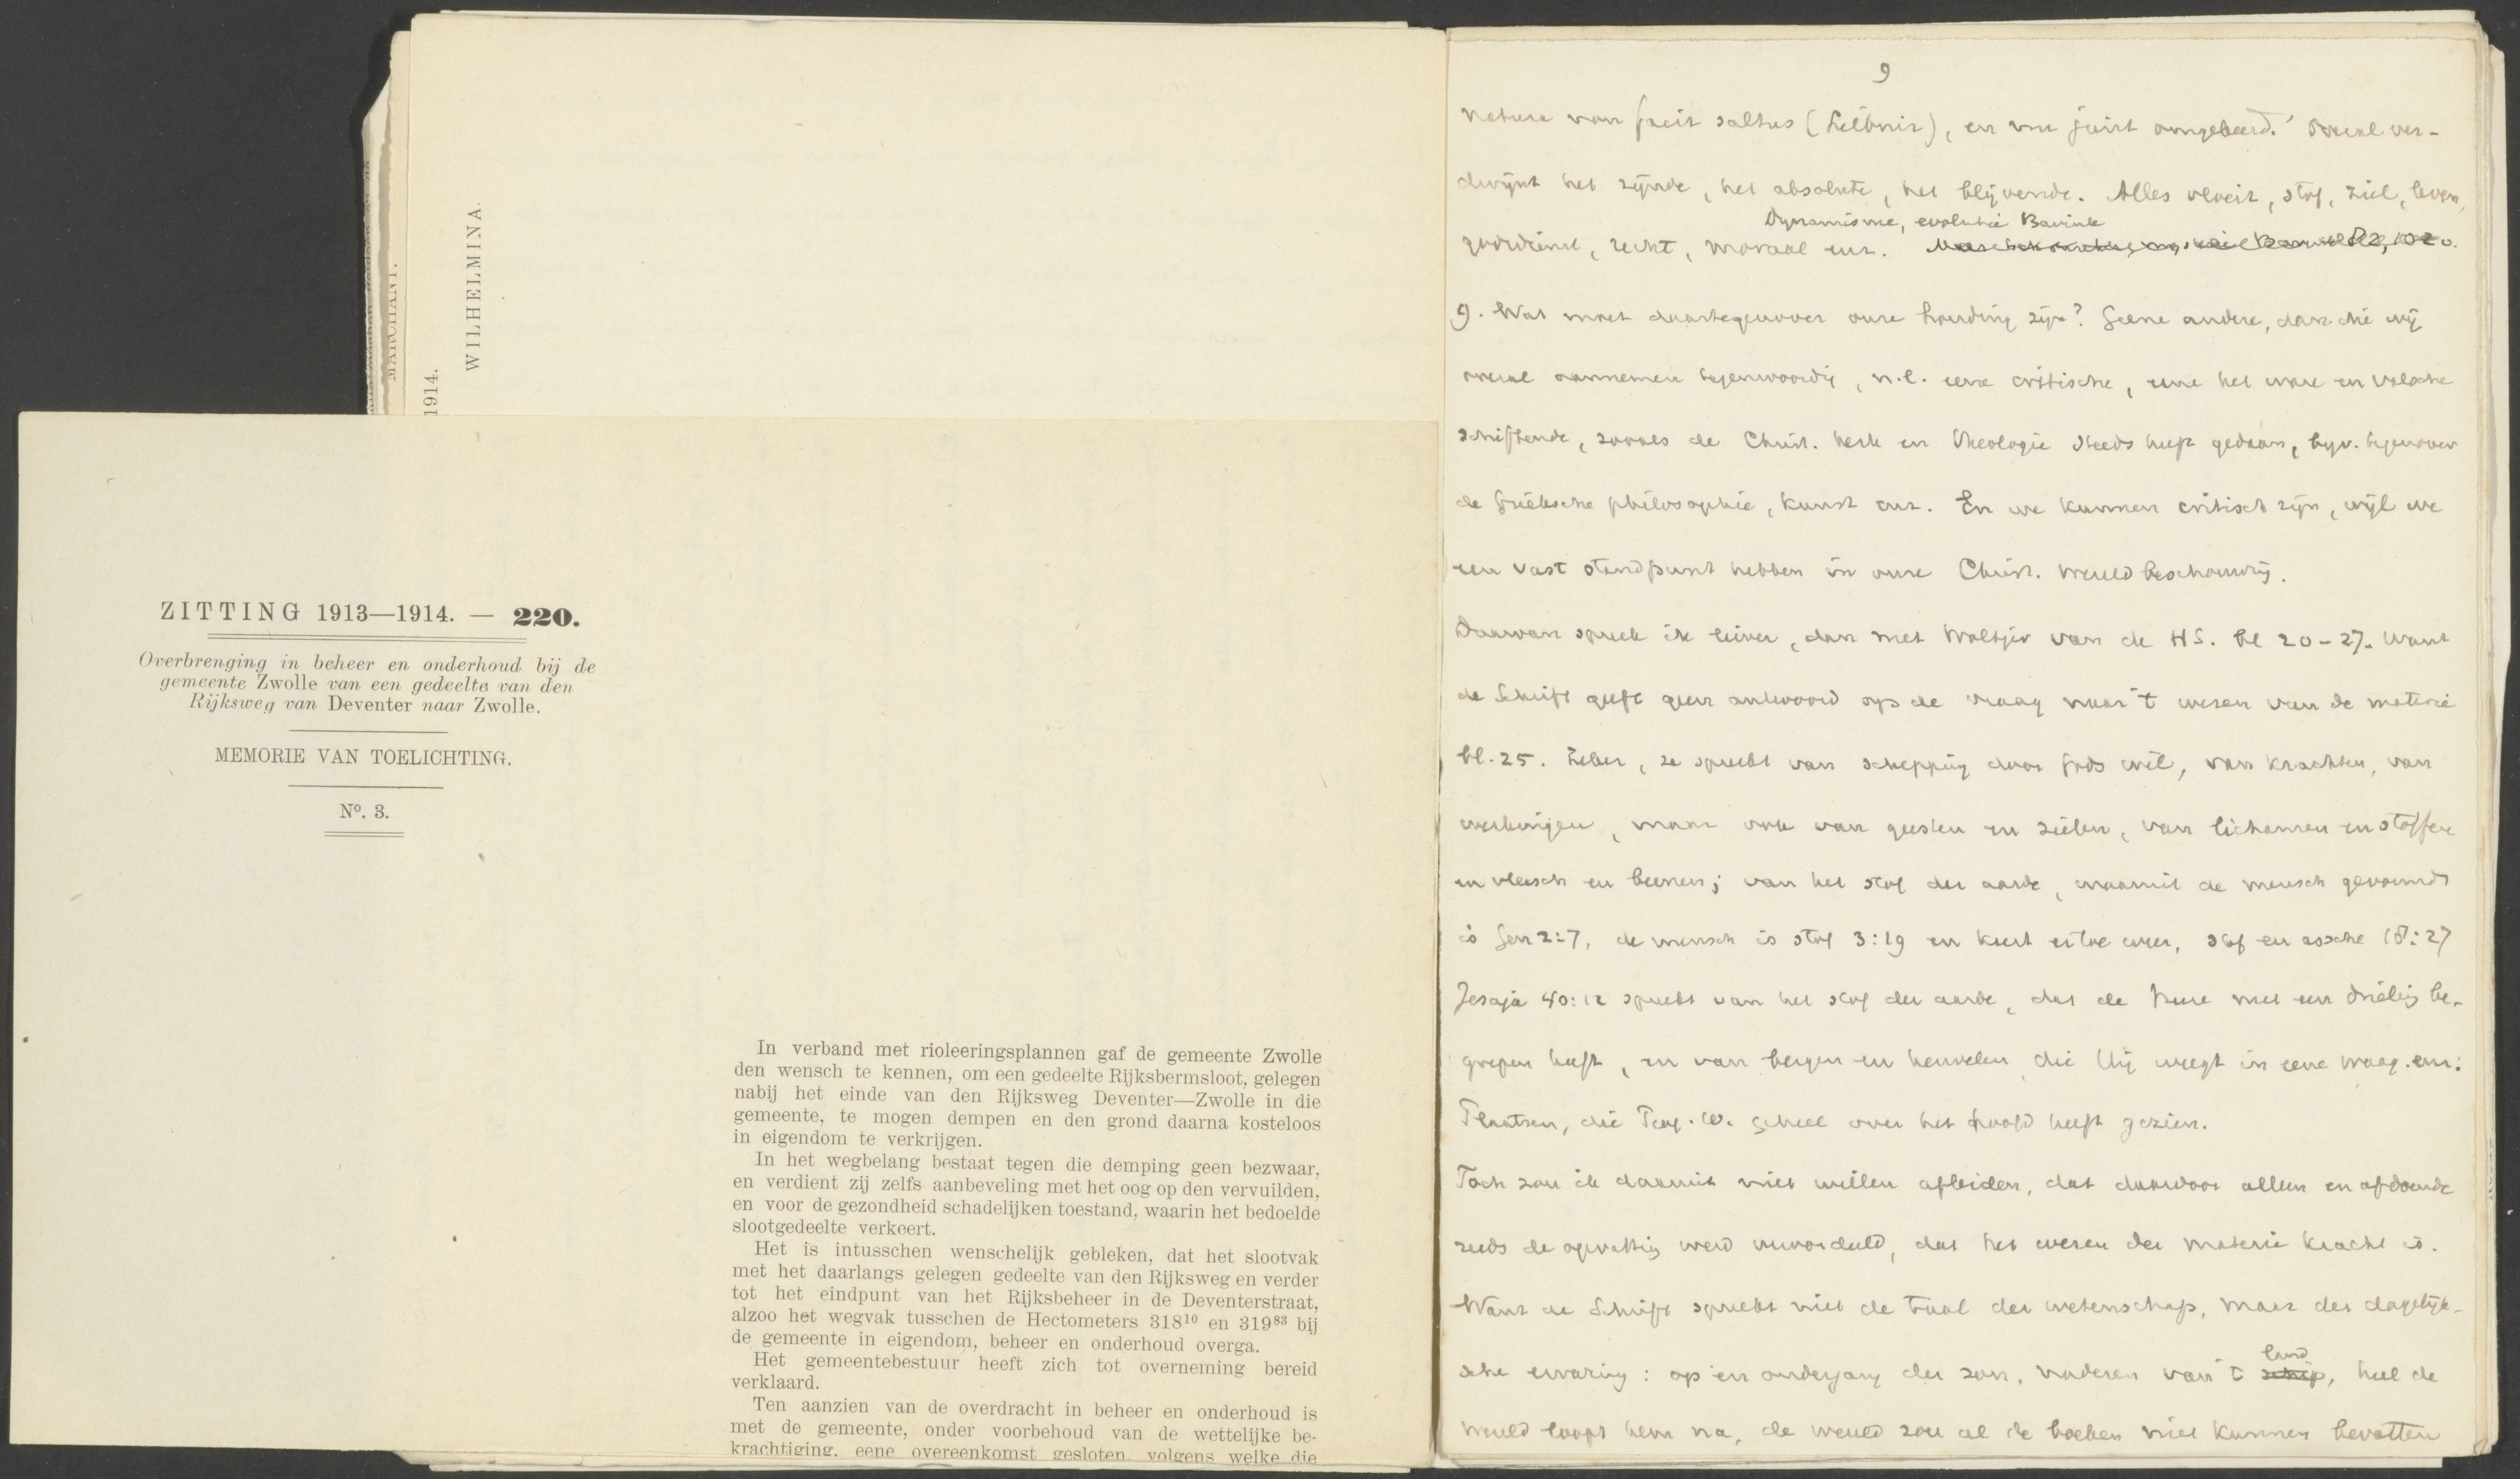 WILHELMINA.
MARCHANT.
1914.
ZITTING 1913—1914. — 220.
Overbrenging in beheer en onderhoud bij de
gemeente Zwolle van een gedeelte van den
Rijksweg van Deventer naar Zwolle.
MEMORIE VAN TOELICHTING.
Nº. 3.
In verband met rioleeringsplannen gaf de gemeente Zwolle
den wensch te kennen, om een gedeelte Rijksbermsloot, gelegen
nabij het einde van den Rijksweg Deventer—Zwolle in die
gemeente, te mogen dempen en den grond daarna kosteloos
in eigendom te verkrijgen.
In het wegbelang bestaat tegen die demping geen bezwaar,
en verdient zij zelfs aanbeveling met het oog op den vervuilden,
en voor de gezondheid schadelijken toestand, waarin het bedoelde
slootgedeelte verkeert.
Het is intusschen wenschelijk gebleken, dat het slootvak
met het daarlangs gelegen gedeelte van den Rijksweg en verder
tot het eindpunt van het Rijksbeheer in de Deventerstraat,
alzoo het wegvak tusschen de Hectometers 318¹⁰ en 319⁸³ bij
de gemeente in eigendom, beheer en onderhoud overga.
Het gemeentebestuur heeft zich tot overneming bereid
verklaard.
Ten aanzien van de overdracht in beheer en onderhoud is
met de gemeente, onder voorbehoud van de wettelijke be-
krachtiging, eene overeenkomst gesloten, volgens welke die
9
natura non facit saltus (Leibniz), en nu juist omgekeerd. Overal ver-
dwijnt het zijnde, het absolute, het blijvende. Alles vloeit, stof, ziel, leven,
Dynamisme, evolutie Bavink
godsdienst, recht, moraal enz.
9. Wat moet daartegenover onze houding zijn? Geene andere, dan die wij
overal aannemen tegenwoordig, n.l. eene critische, eene het ware en valsche
schiftende, zooals de Christ. kerk en theologie steeds heeft gedaan, bijv. tegenover
de Grieksche philosophie, kunst enz. En we kunnen critisch zijn, wijl we
een vast standpunt hebben in onze Christ. wereldbeschouwing.
Daarvan spreek ik liever, dan met Woltjer van de HS. bl 20-27. Want
de Schrift geeft geen antwoord op de vraag naar 't wezen van de materie
bl. 25. Zeker, ze spreekt van schepping door Gods wil, van krachten, van
werkingen, maar ook van geesten en zielen, van lichamen en stoffen
en vleesch en beenen; van het stof der aarde, waaruit de mensch gevormd
is Gen 2:7, de mensch is stof 3:19 en keert ertoe weer, stof en assche 18:27
Jesaja 40:12 spreekt van het stof der aarde, dat de Heere met een drieling be-
grepen heeft, en van bergen en heuvelen die Hij weegt in eene waag. enz:
Plaatsen, die Prof. W. geheel over het hoofd heeft gezien.
Toch zou ik daaruit niet willen afleiden, dat daardoor alleen en afdoende
reeds de opvatting werd veroordeeld, dat het wezen der materie kracht is.
Want de Schrift spreekt niet de taal der wetenschap, maar der dagelijk-
sche ervaring: op en ondergang der zon, naderen van 't schip, heel de
land
wereld loopt hem na, de wereld zou al de boeken niet kunnen bevatten